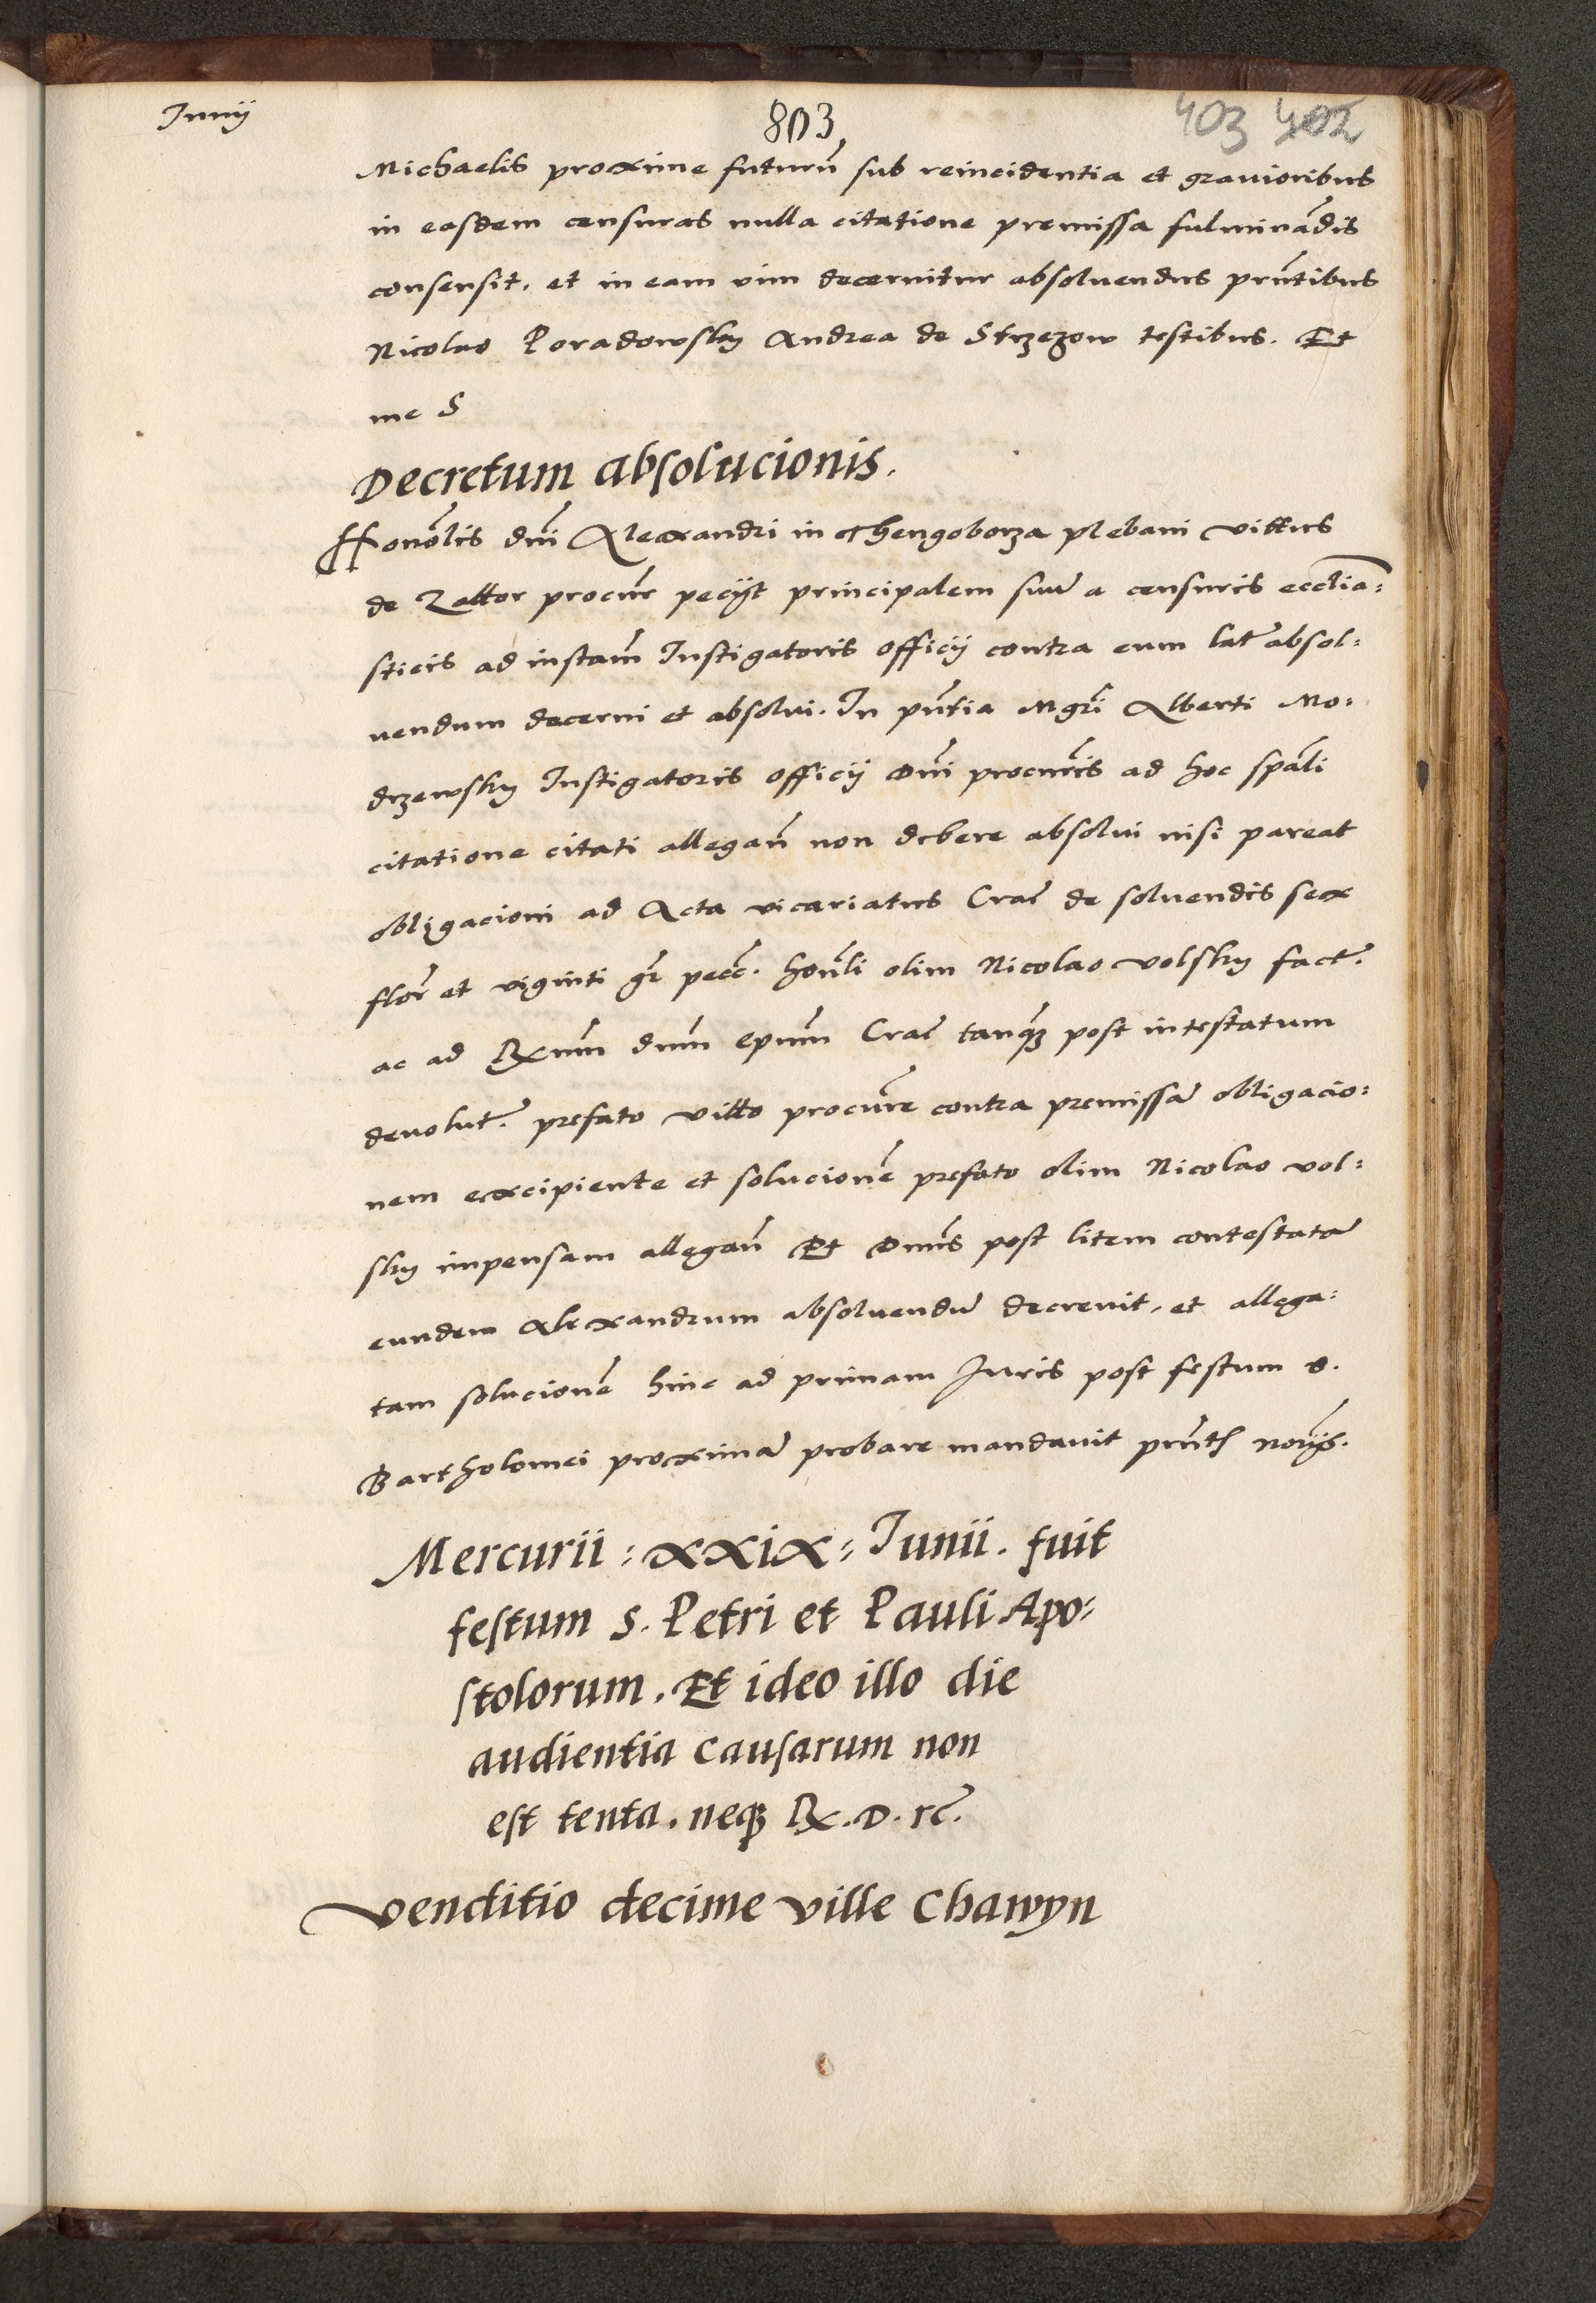 Junij
803
403 402
Michaelis proxime futurũ sub reincidentia et gravioribus
in easdem censuras nulla citatione premissa fulminãdis
consensit, et in eam vim decernitur absoluendus prñtibus
Nicolao Poradowsky Andrea de Strzezow testibus. Et
me S
Decretum absolucionis.
Honõlis dñi Alexandri in Thengoborza plebani vittus
de Zattor procur̃ pecijt principalem suũ a censuris ecclia-
sticis ad instam̃ Instigatoris officij contra eum lat̃ absol-
uendum decerni et absolui. In pñtia Mgr̃i Alberti Mo-
drzewsky Instigatoris officij Dñi procur̃is ad hoc spãli
citatione citati allegañ non debere absolui nisi pareat
obligacioni ad Acta vicariatus Crac̃ de soluendis sex
flor̃ et viginti gr̃ pecc̃. honli olim Nicolao volsky fact̃.
ac ad Rxum̃ dum̃ Epum̃ Crac̃ tanqȝ post intestatum
devolut̃. prefato vitto procur̃e contra premissã obligacio-
nem excipiente et solucionẽ prefato olim Nicolao vol-
sky impensam allegañ Et Dnus̃ post litem contestatã
eundem Alexandrum absoluendũ decrevit, et allega-
tam solucionẽ hinc ad primam Juris post festum S.
Bartholomei proximã probare mandauit prñtĩ norijs.
Mercurii : xxix : Junii . fuit
festum S. Petri et Pauli Apo-
stolorum. Et ideo illo die
audientia causarum non
est tenta. neqȝ Rx. D. rc̃.
Venditio decime ville Chawyn